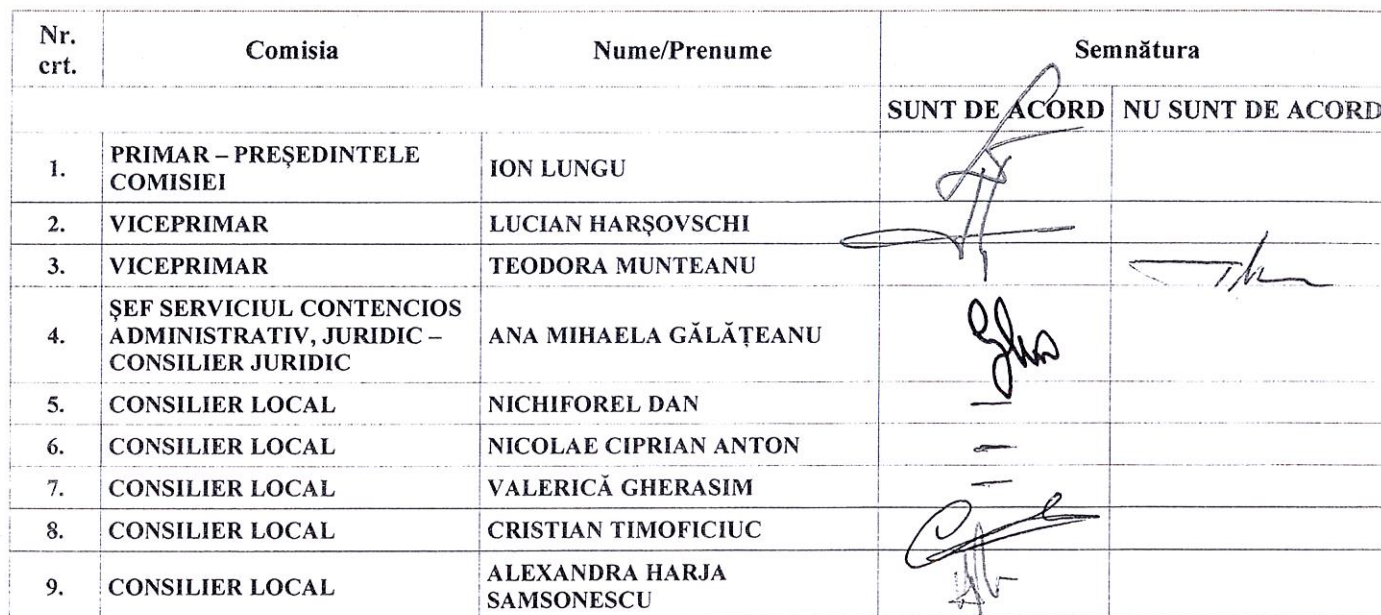 Nr. crt. Comisia Nume/Prenume Semnătura
SUNT DE ACORD NU SUNT DE ACORD
1. PRIMAR – PREȘEDINTELE COMISIEI ION LUNGU
2. VICEPRIMAR LUCIAN HARȘOVSCHI
3. VICEPRIMAR TEODORA MUNTEANU
4. ȘEF SERVICIUL CONTENCIOS ADMINISTRATIV, JURIDIC – CONSILIER JURIDIC ANA MIHAELA GĂLĂȚEANU
5. CONSILIER LOCAL NICHIFOREL DAN —
6. CONSILIER LOCAL NICOLAE CIPRIAN ANTON —
7. CONSILIER LOCAL VALERICĂ GHERASIM —
8. CONSILIER LOCAL CRISTIAN TIMOFICIUC
9. CONSILIER LOCAL ALEXANDRA HARJA SAMSONESCU